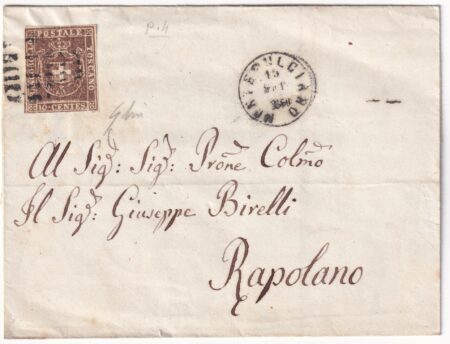 P. 4
POSTALE
TOSCANO
10 CENTES
MONTEPULCIANO
15
1860
Al Sig.r Sig.r Prōne Colmō
Il Sig.r Giuseppe Birelli
Rapolano